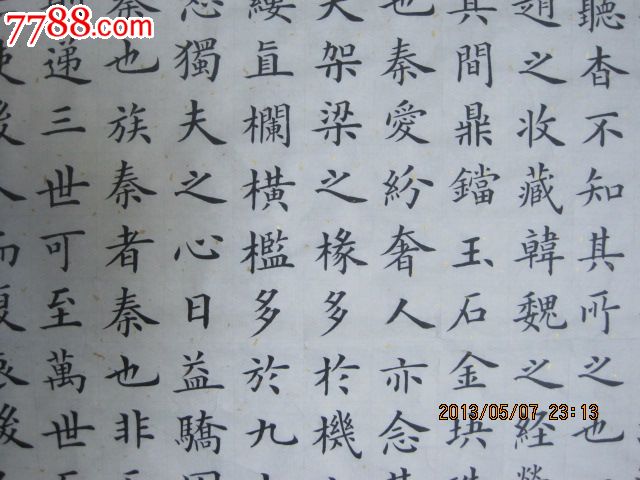 7788.com
聽杳不知其所之也
趙之收藏韓魏之經
其間鼎鐺玉石金块珠
也秦愛紛奢人亦念其
夫架梁之椽多於機
直欄橫檻多於九
忍獨夫之心日益驕固
秦也族秦者秦也非
遞三世可至萬世
後人而復哀後
2013/05/07 23:13